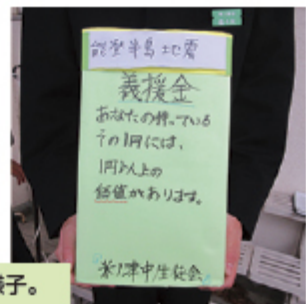 能登半島地震
義援金
あなたの持っている
その1円には、
1円以上の
価値があります。
新津中生徒会
様子。